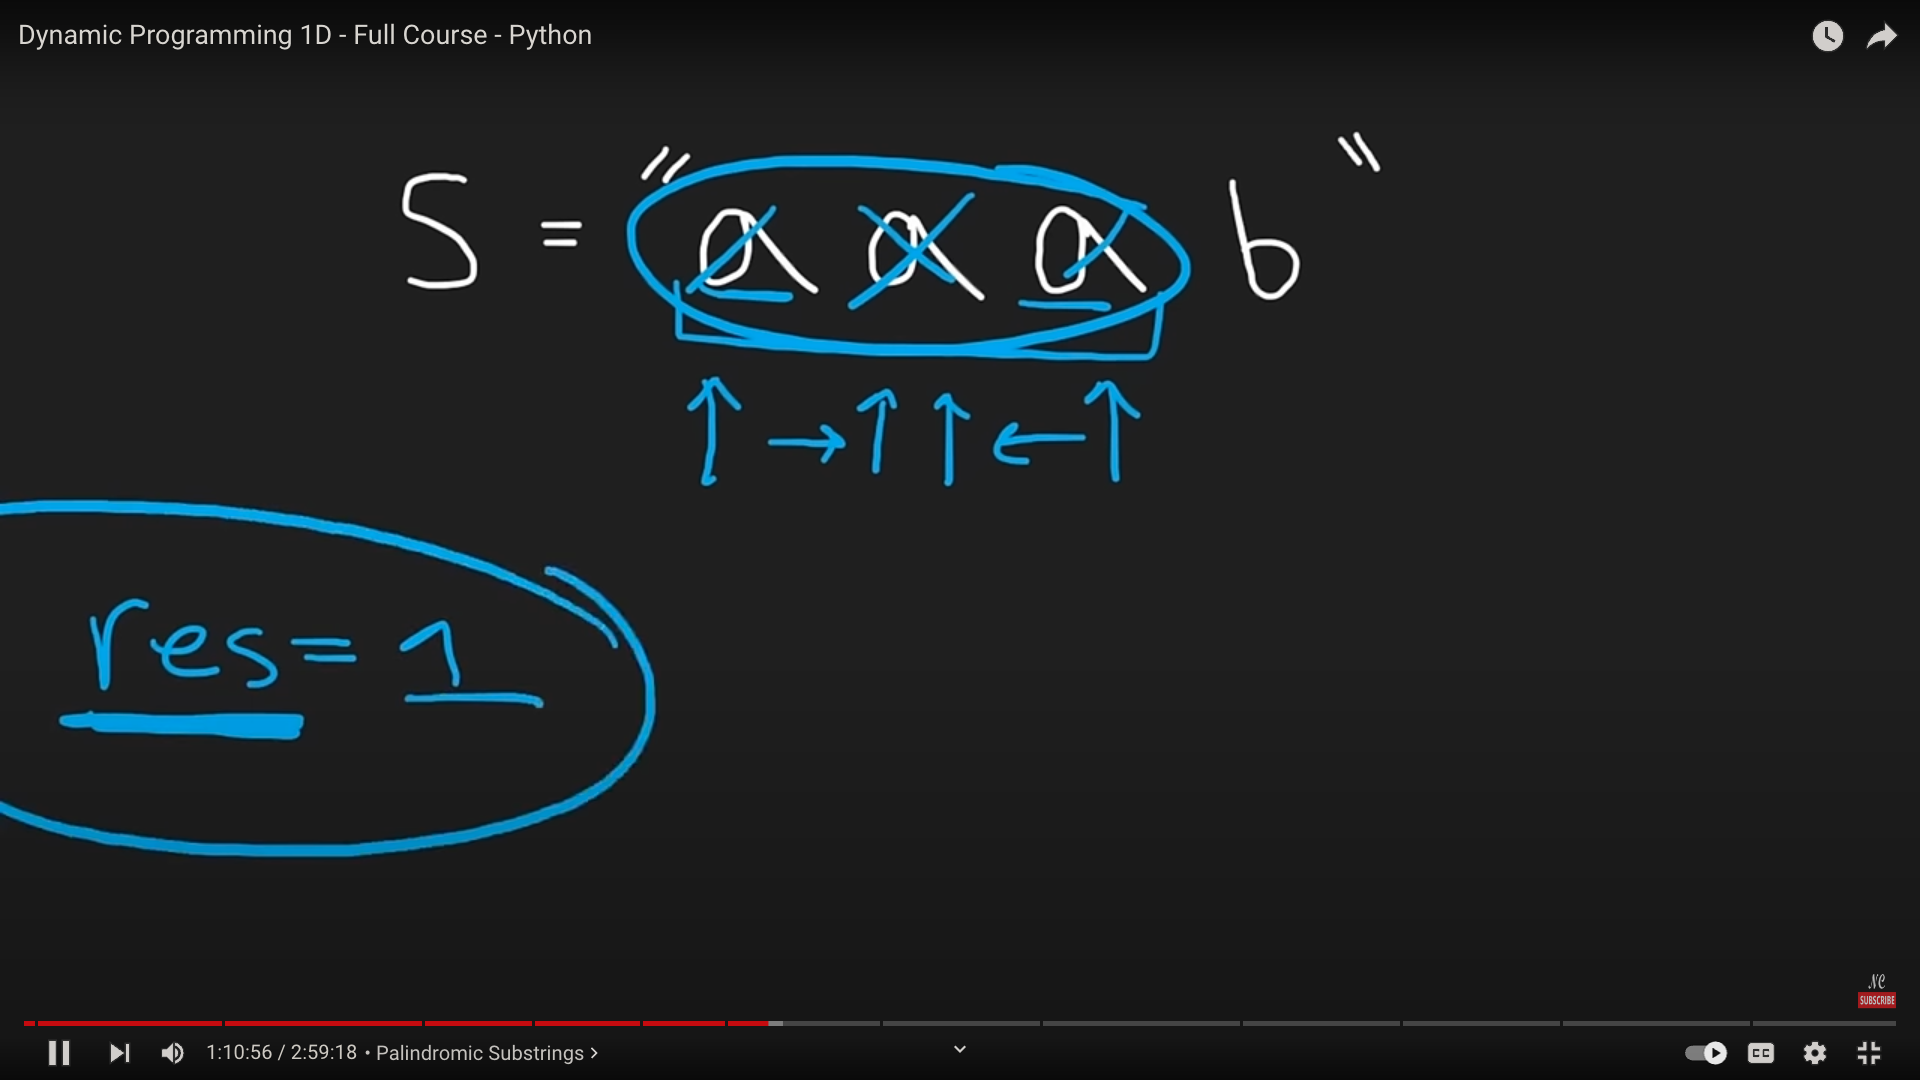 Dynamic Programming 1D - Full Course - Python
S = "a a a b"
res = 1
NC
SUBSCRIBE
1:10:56 / 2:59:18 • Palindromic Substrings >
CC